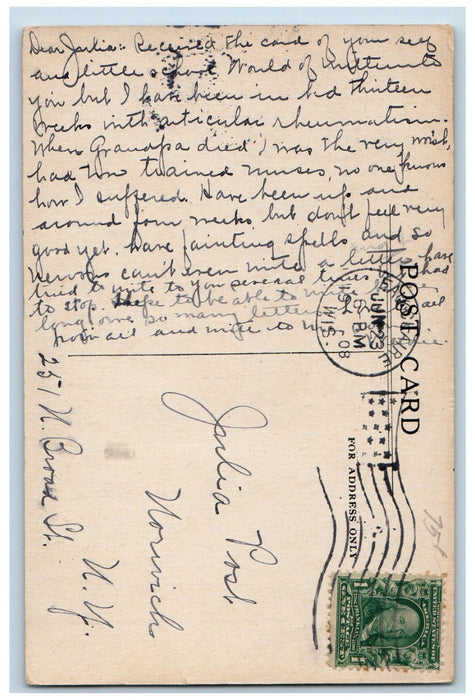 Dear Julia: Received the card of your self
and little school Would of written to
you but I have been in bed thirteen
weeks with articular rheumatism.
When Grandpa died I was the very worst,
had two trained nurses, no one knows
how I suffered. Have been up and
around four weeks but don't feel very
good yet. have fainting spells and so
nervous can't even write a letter have
tried to write to you several times and had
to stop. hope to be able to write
long one so many letters
and write to
POST CARD
FOR ADDRESS ONLY
JUN 23
6 PM
1908
WIS.
75¢
Julia Post
Norwich
N.Y.
251 N. Broad St.
UNITED STATES OF AMERICA
1